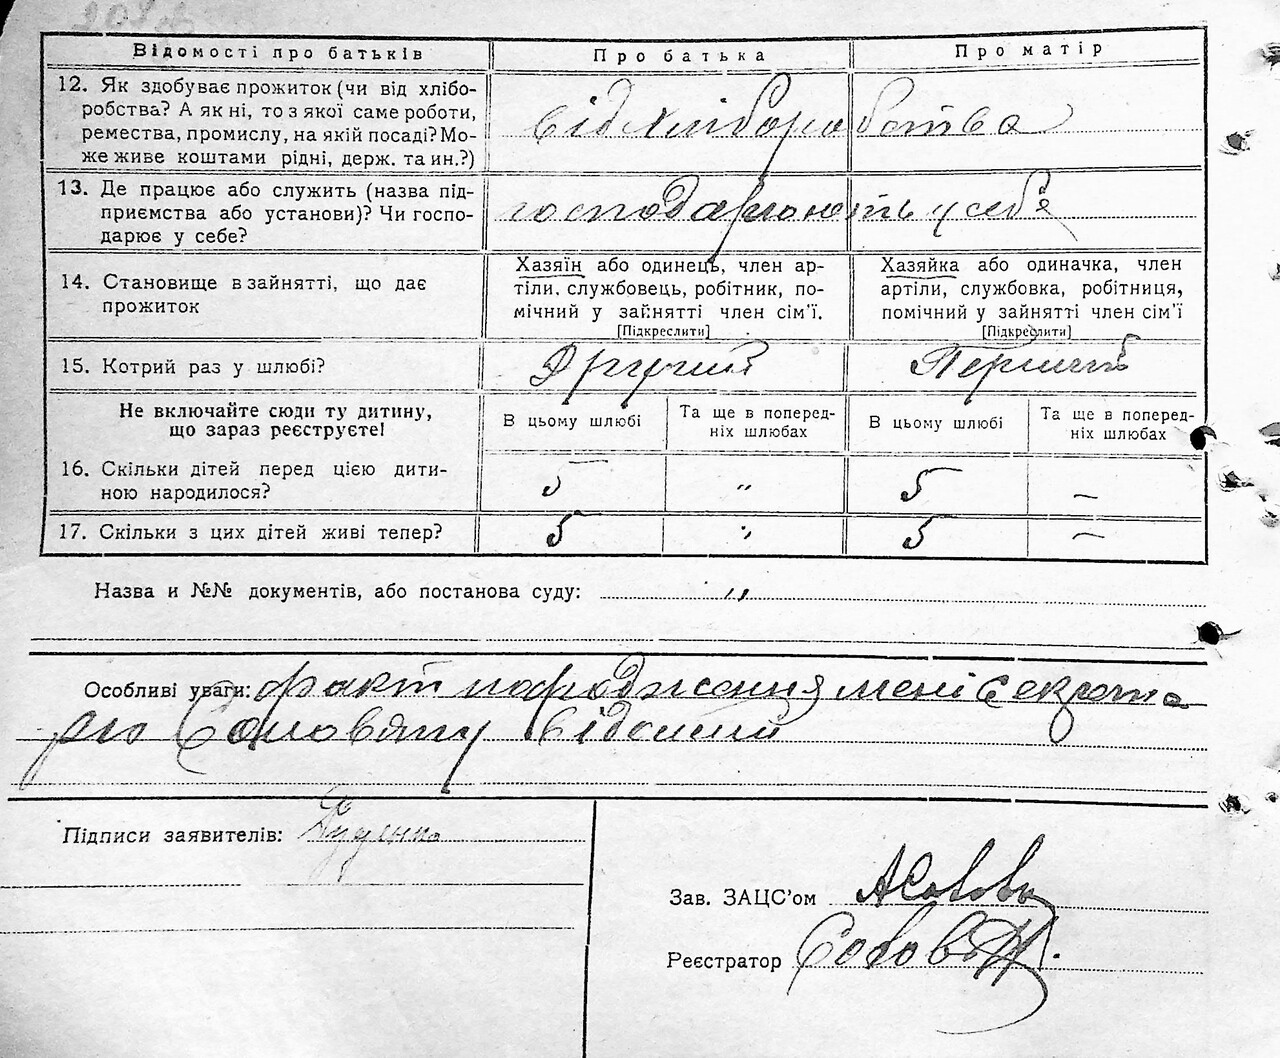 Відомості про батьків
Про батька
Про матір
12. Як здобуває прожиток (чи від хлібо-
робства? А як ні, то з якої саме роботи,
ремества, промислу, на якій посаді? Мо-
же живе коштами рідні, держ. та ин.?)
від хліборобства
13. Де працює або служить (назва під-
приємства або установи)? Чи госпо-
дарює у себе?
господарюють у себе
14. Становище в зайнятті, що дає
прожиток
Хазяїн або одинець, член ар-
тіли, службовець, робітник, по-
мічний у зайнятті член сім'ї.
[Підкреслити]
Хазяйка або одиначка, член
артіли, службовка, робітниця,
помічний у зайнятті член сім'ї
[Підкреслити]
15. Котрий раз у шлюбі?
Другий
Перший
Не включайте сюди ту дитину,
що зараз реєструєте!
В цьому шлюбі
Та ще в поперед-
ніх шлюбах
В цьому шлюбі
Та ще в поперед-
ніх шлюбах
16. Скільки дітей перед цією дити-
ною народилося?
5
"
5
—
17. Скільки з цих дітей живі тепер?
5
"
5
—
Назва и №№ документів, або постанова суду: "
Особливі уваги: факт народження мені Секрета
рю Соловяну відомий
Підписи заявителів:
Зав. ЗАЦС'ом
Реєстратор